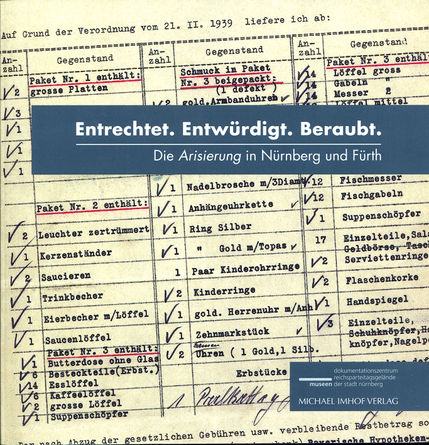 Auf Grund der Verordnung vom 21. II. 1939 liefere ich ab:
An- zahl Gegenstand
An- zahl Gegenstand
An- zahl Gegenstand
Paket Nr. 1 enthält:
2 grosse Platten
3
1
1
Schmuck in Paket
Nr. 3 beigepackt:
(1 defekt)
2 gold. Armbanduhren
Paket Nr. 3 enthält:
14 Löffel gross
14 Gabeln "
14 Messer 2
Löffel mittel
Entrechtet. Entwürdigt. Beraubt.
Die Arisierung in Nürnberg und Fürth
Paket Nr. 2 enthält:
2 Leuchter zertrümmert
1 Kerzenständer
2 Saucieren
1 Trinkbecher
1 Eierbecher m/Löffel
1 Saucenlöffel
Paket Nr. 3 enthält:
1 Butterdose ohne Glas
6 Besteckteile (Erbst.)
14 Esslöffel
6 Kaffeelöffel
2 grosse Löffel
1 Suppenschöpfer
1 Nadelbrosche m/3Diam
1 Anhängeuhrkette
1 Ring Silber
1 " Gold m/Topas
1 Paar Kinderohrringe
2 Kinderringe
1 gold. Herrenuhr m/Anh
1 Zehnmarkstück
2 Uhren ( 1 Gold,1 Silb.
Erbstücke
12 Fischmesser
12 Fischgabeln
1 Suppenschöpfer
17 Einzelteile,
Geldbörse,
2 Serviettenringe
2 Flaschenkorke
1 Handspiegel
3 Einzelteile,
Schuhknöpfer,
knöpfer,
dokumentationszentrum
reichsparteitagsgelände
museen der stadt nürnberg
MICHAEL IMHOF VERLAG
nach Abzug der gesetzlichen Gebühren usw. verbleibende Restbetrag